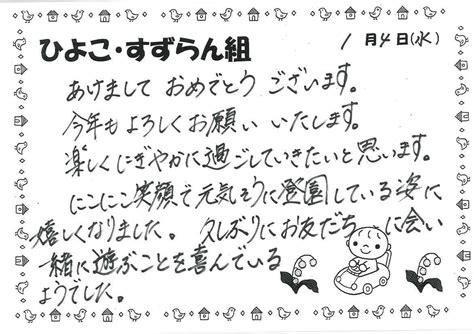 ひよこ・すずらん組
1月4日(水)
あけまして おめでとう ございます。
今年も よろしく お願い いたします。
楽しくにぎやかに過ごしていきたいと思います。
にこにこ笑顔で元気そうに登園している姿に
嬉しくなりました。 久しぶりにお友だちに会い
一緒に遊ぶことを喜んでいる
ようでした。